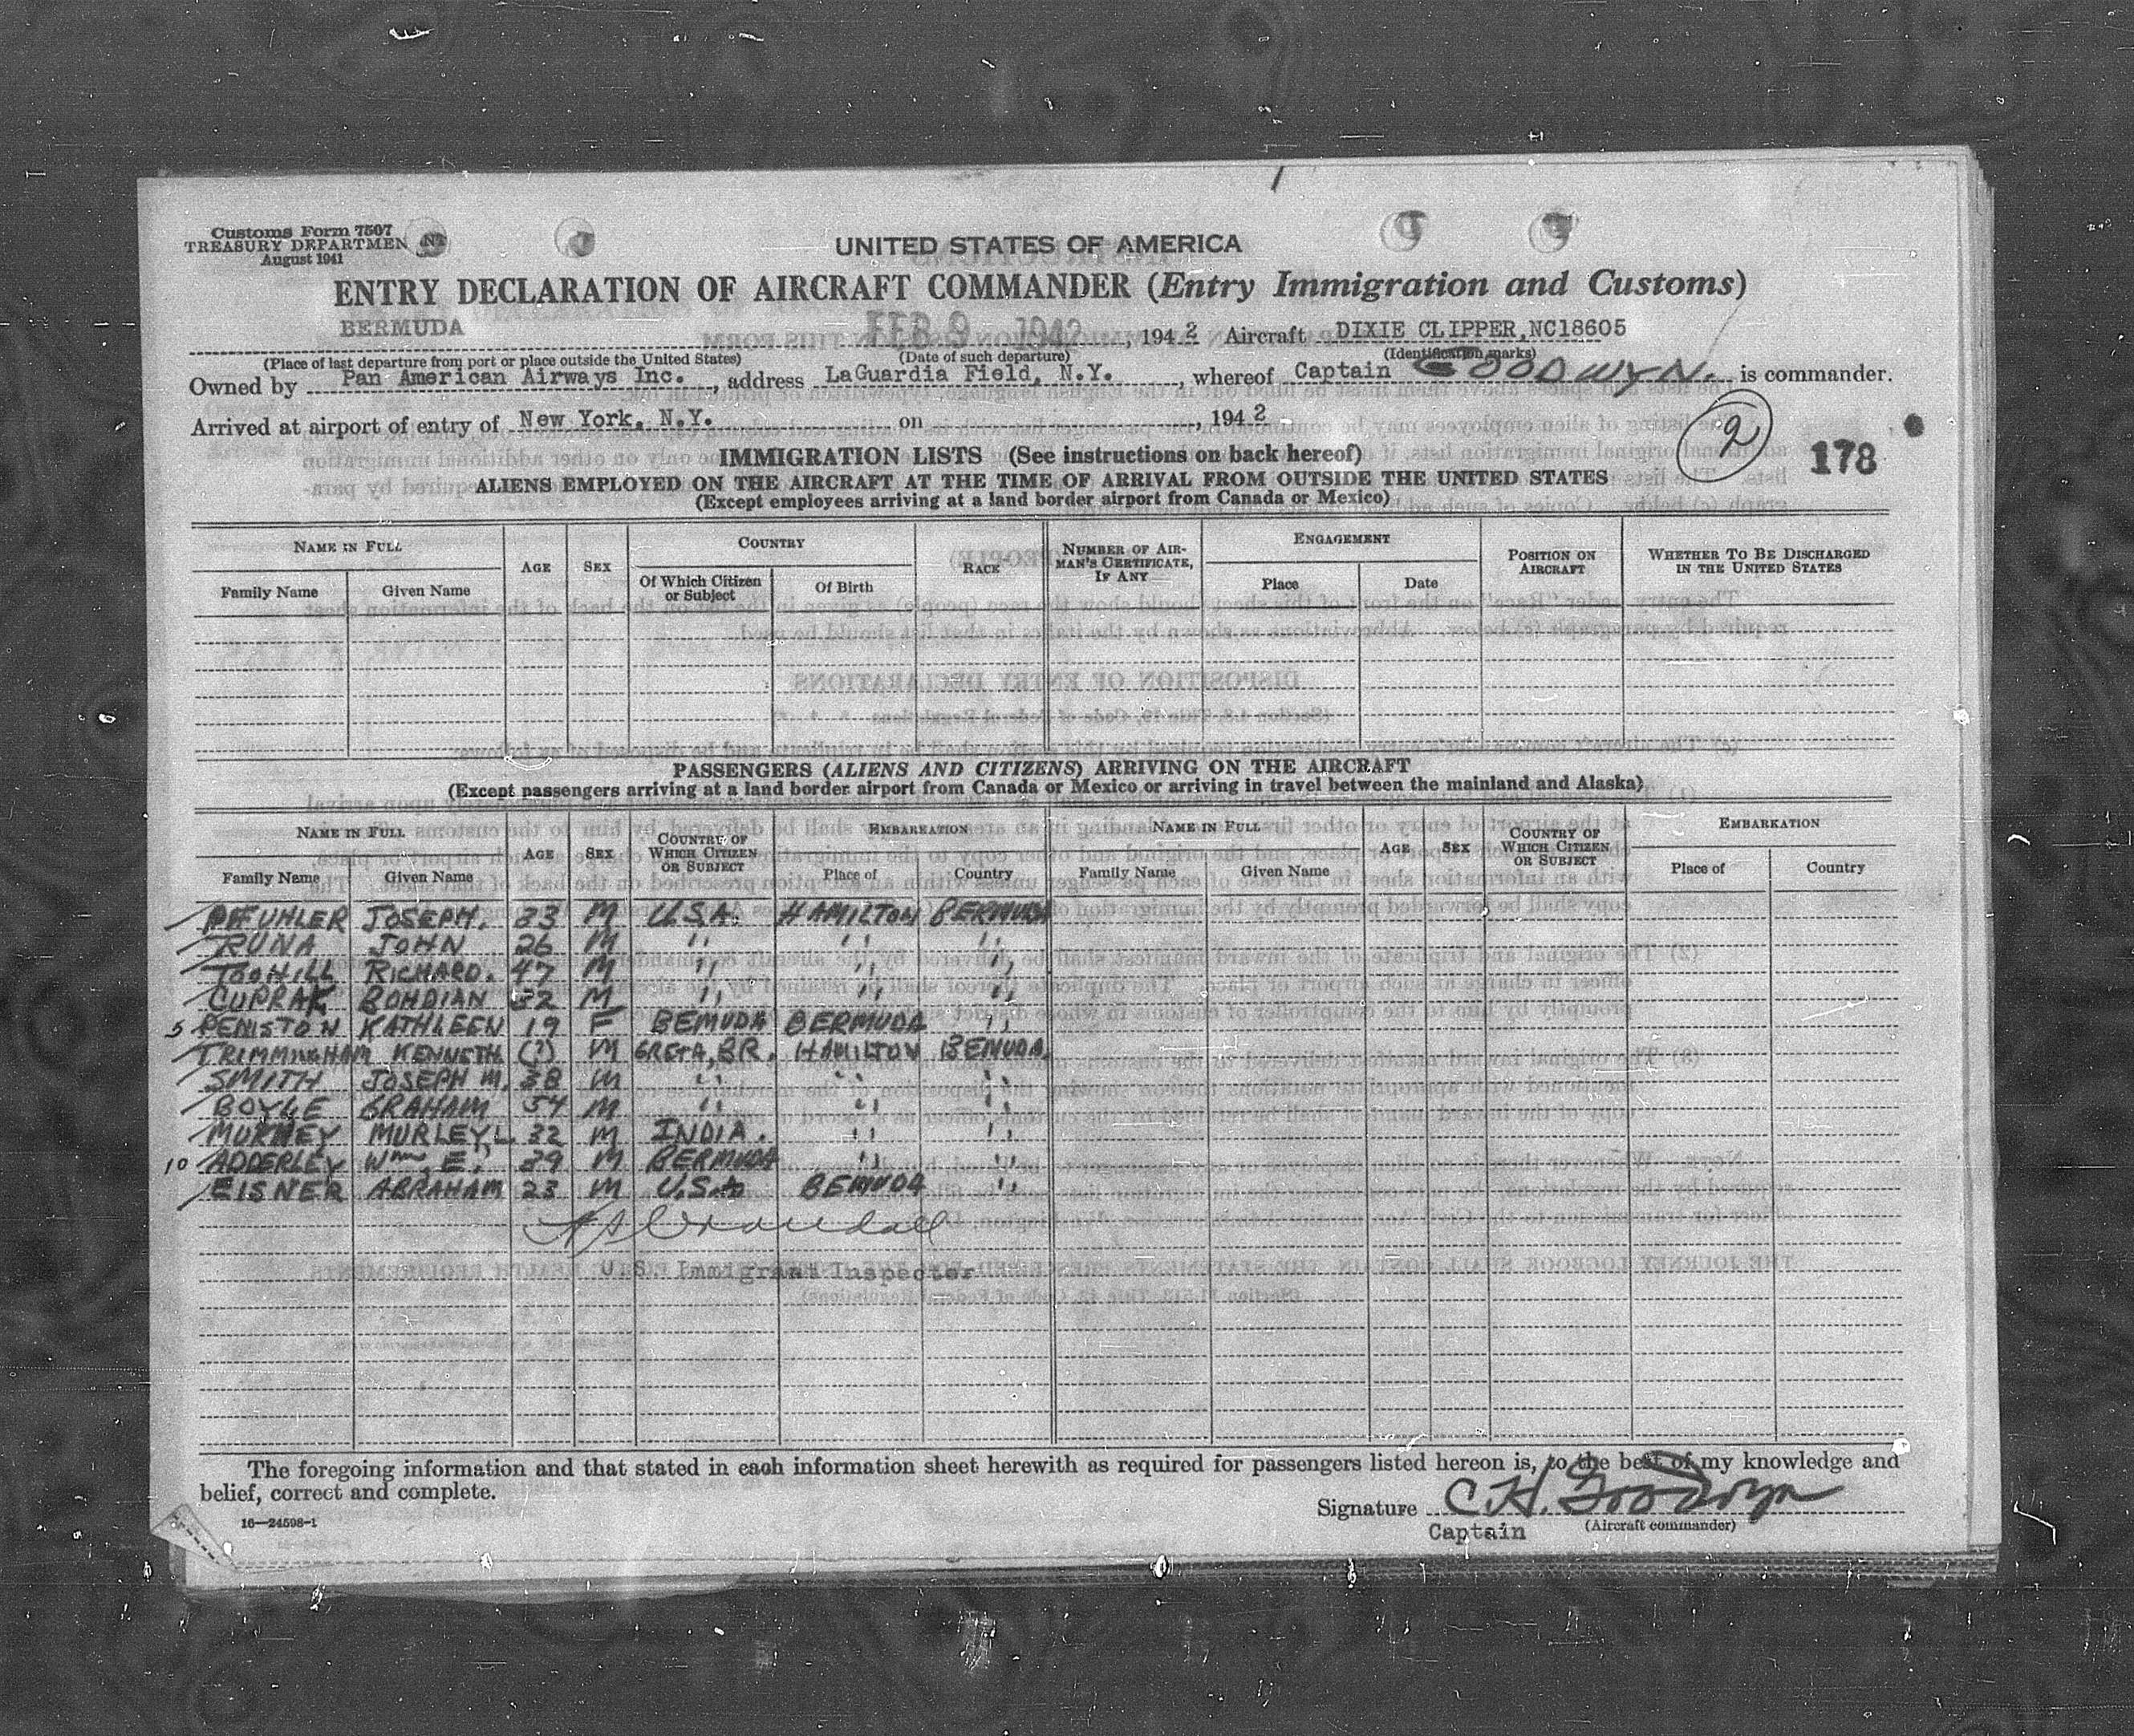 Customs Form 7507
TREASURY DEPARTMENT
August 1941
UNITED STATES OF AMERICA
ENTRY DECLARATION OF AIRCRAFT COMMANDER (Entry Immigration and Customs)
BERMUDA FEB 9 1942, 1942 Aircraft DIXIE CLIPPER, NC18605
(Place of last departure from port or place outside the United States) (Date of such departure) (Identification marks)
Owned by Pan American Airways Inc., address LaGuardia Field, N.Y., whereof Captain GOODWYN. is commander.
Arrived at airport of entry of New York, N.Y. on , 1942
2
178
IMMIGRATION LISTS (See instructions on back hereof)
ALIENS EMPLOYED ON THE AIRCRAFT AT THE TIME OF ARRIVAL FROM OUTSIDE THE UNITED STATES
(Except employees arriving at a land border airport from Canada or Mexico)
NAME IN FULL AGE SEX COUNTRY RACE NUMBER OF AIRMAN'S CERTIFICATE, IF ANY ENGAGEMENT POSITION ON AIRCRAFT WHETHER TO BE DISCHARGED IN THE UNITED STATES
Family Name Given Name Of Which Citizen or Subject Of Birth Place Date
PASSENGERS (ALIENS AND CITIZENS) ARRIVING ON THE AIRCRAFT
(Except passengers arriving at a land border airport from Canada or Mexico or arriving in travel between the mainland and Alaska)
NAME IN FULL AGE SEX COUNTRY OF WHICH CITIZEN OR SUBJECT EMBARKATION NAME IN FULL AGE SEX COUNTRY OF WHICH CITIZEN OR SUBJECT EMBARKATION
Family Name Given Name Place of Country Family Name Given Name Place of Country
PFUHLER JOSEPH. 33 M U.S.A. HAMILTON BERMUDA
RUNA JOHN 26 M " " "
TOOHILL RICHARD. 47 M " " "
CUPRAK BOHDIAN 32 M " " "
5 PENISTON KATHLEEN 19 F BEMUDA BERMUDA "
TRIMMINGHAM KENNETH (?) M GRETA, BR. HAMILTON BEMUDA.
SMITH JOSEPH M. 38 M " " "
BOYLE GRAHAM 54 M " " "
MURLEY, L 32 M INDIA. " "
10 ADDERLEY Wm, E. 39 M BERMUDA " "
EISNER ABRAHAM 23 M BEMUDA "
Crandall
U.S. Immigrant Inspector
The foregoing information and that stated in each information sheet herewith as required for passengers listed hereon is, to the best of my knowledge and
belief, correct and complete.
Signature C.H. Goodwyn
16—24598-1
Captain (Aircraft commander)